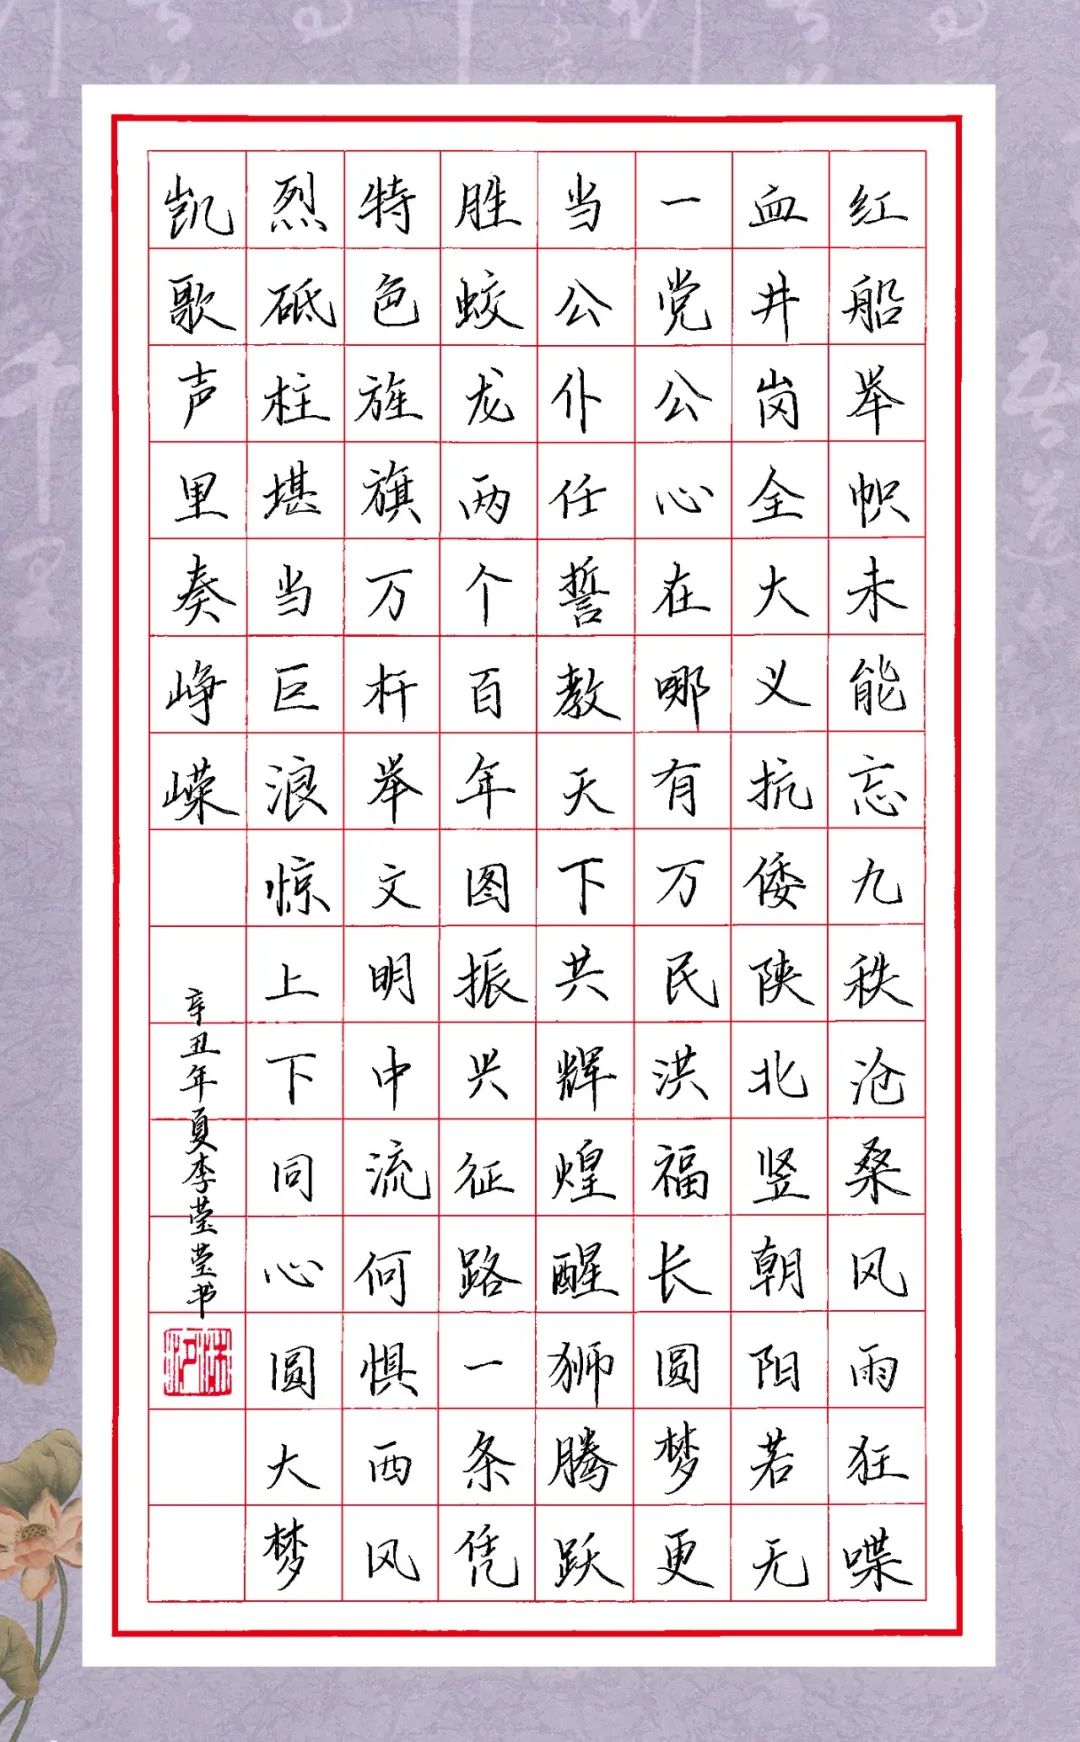 红船举帜未能忘九秩沧桑风雨狂喋
血井岗全大义抗倭陕北竖朝阳若无
一党公心在哪有万民洪福长圆梦更
当公仆任誓教天下共辉煌醒狮腾跃
胜蛟龙两个百年图振兴征路一条凭
特色旌旗万杆举文明中流何惧西风
烈砥柱堪当巨浪惊上下同心圆大梦
凯歌声里奏峥嵘
辛丑年夏李莹莹书